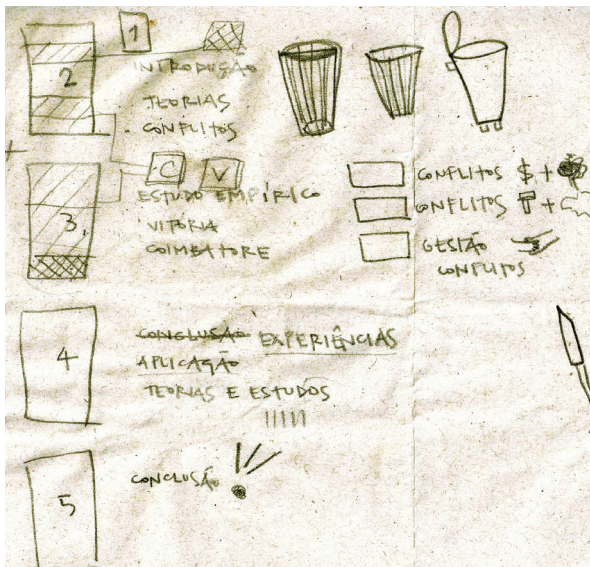 1
2
INTRODUÇÃO
TEORIAS
CONFLITOS
C V
3.
ESTUDO EMPÍRICO
VITÓRIA
COIMBATORE
CONFLITOS $ +
CONFLITOS T +
GESTÃO
CONFLITOS
4
CONCLUSÃO EXPERIÊNCIAS
APLICAÇÃO
TEORIAS E ESTUDOS
5
CONCLUSÃO